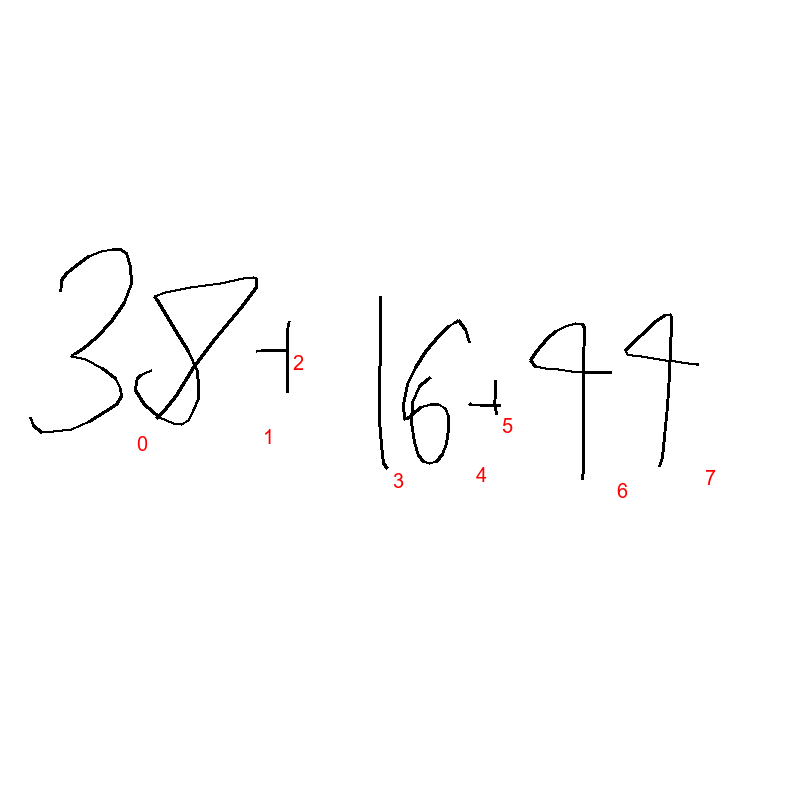 38+16+44
0 1 2 3 4 5 6 7